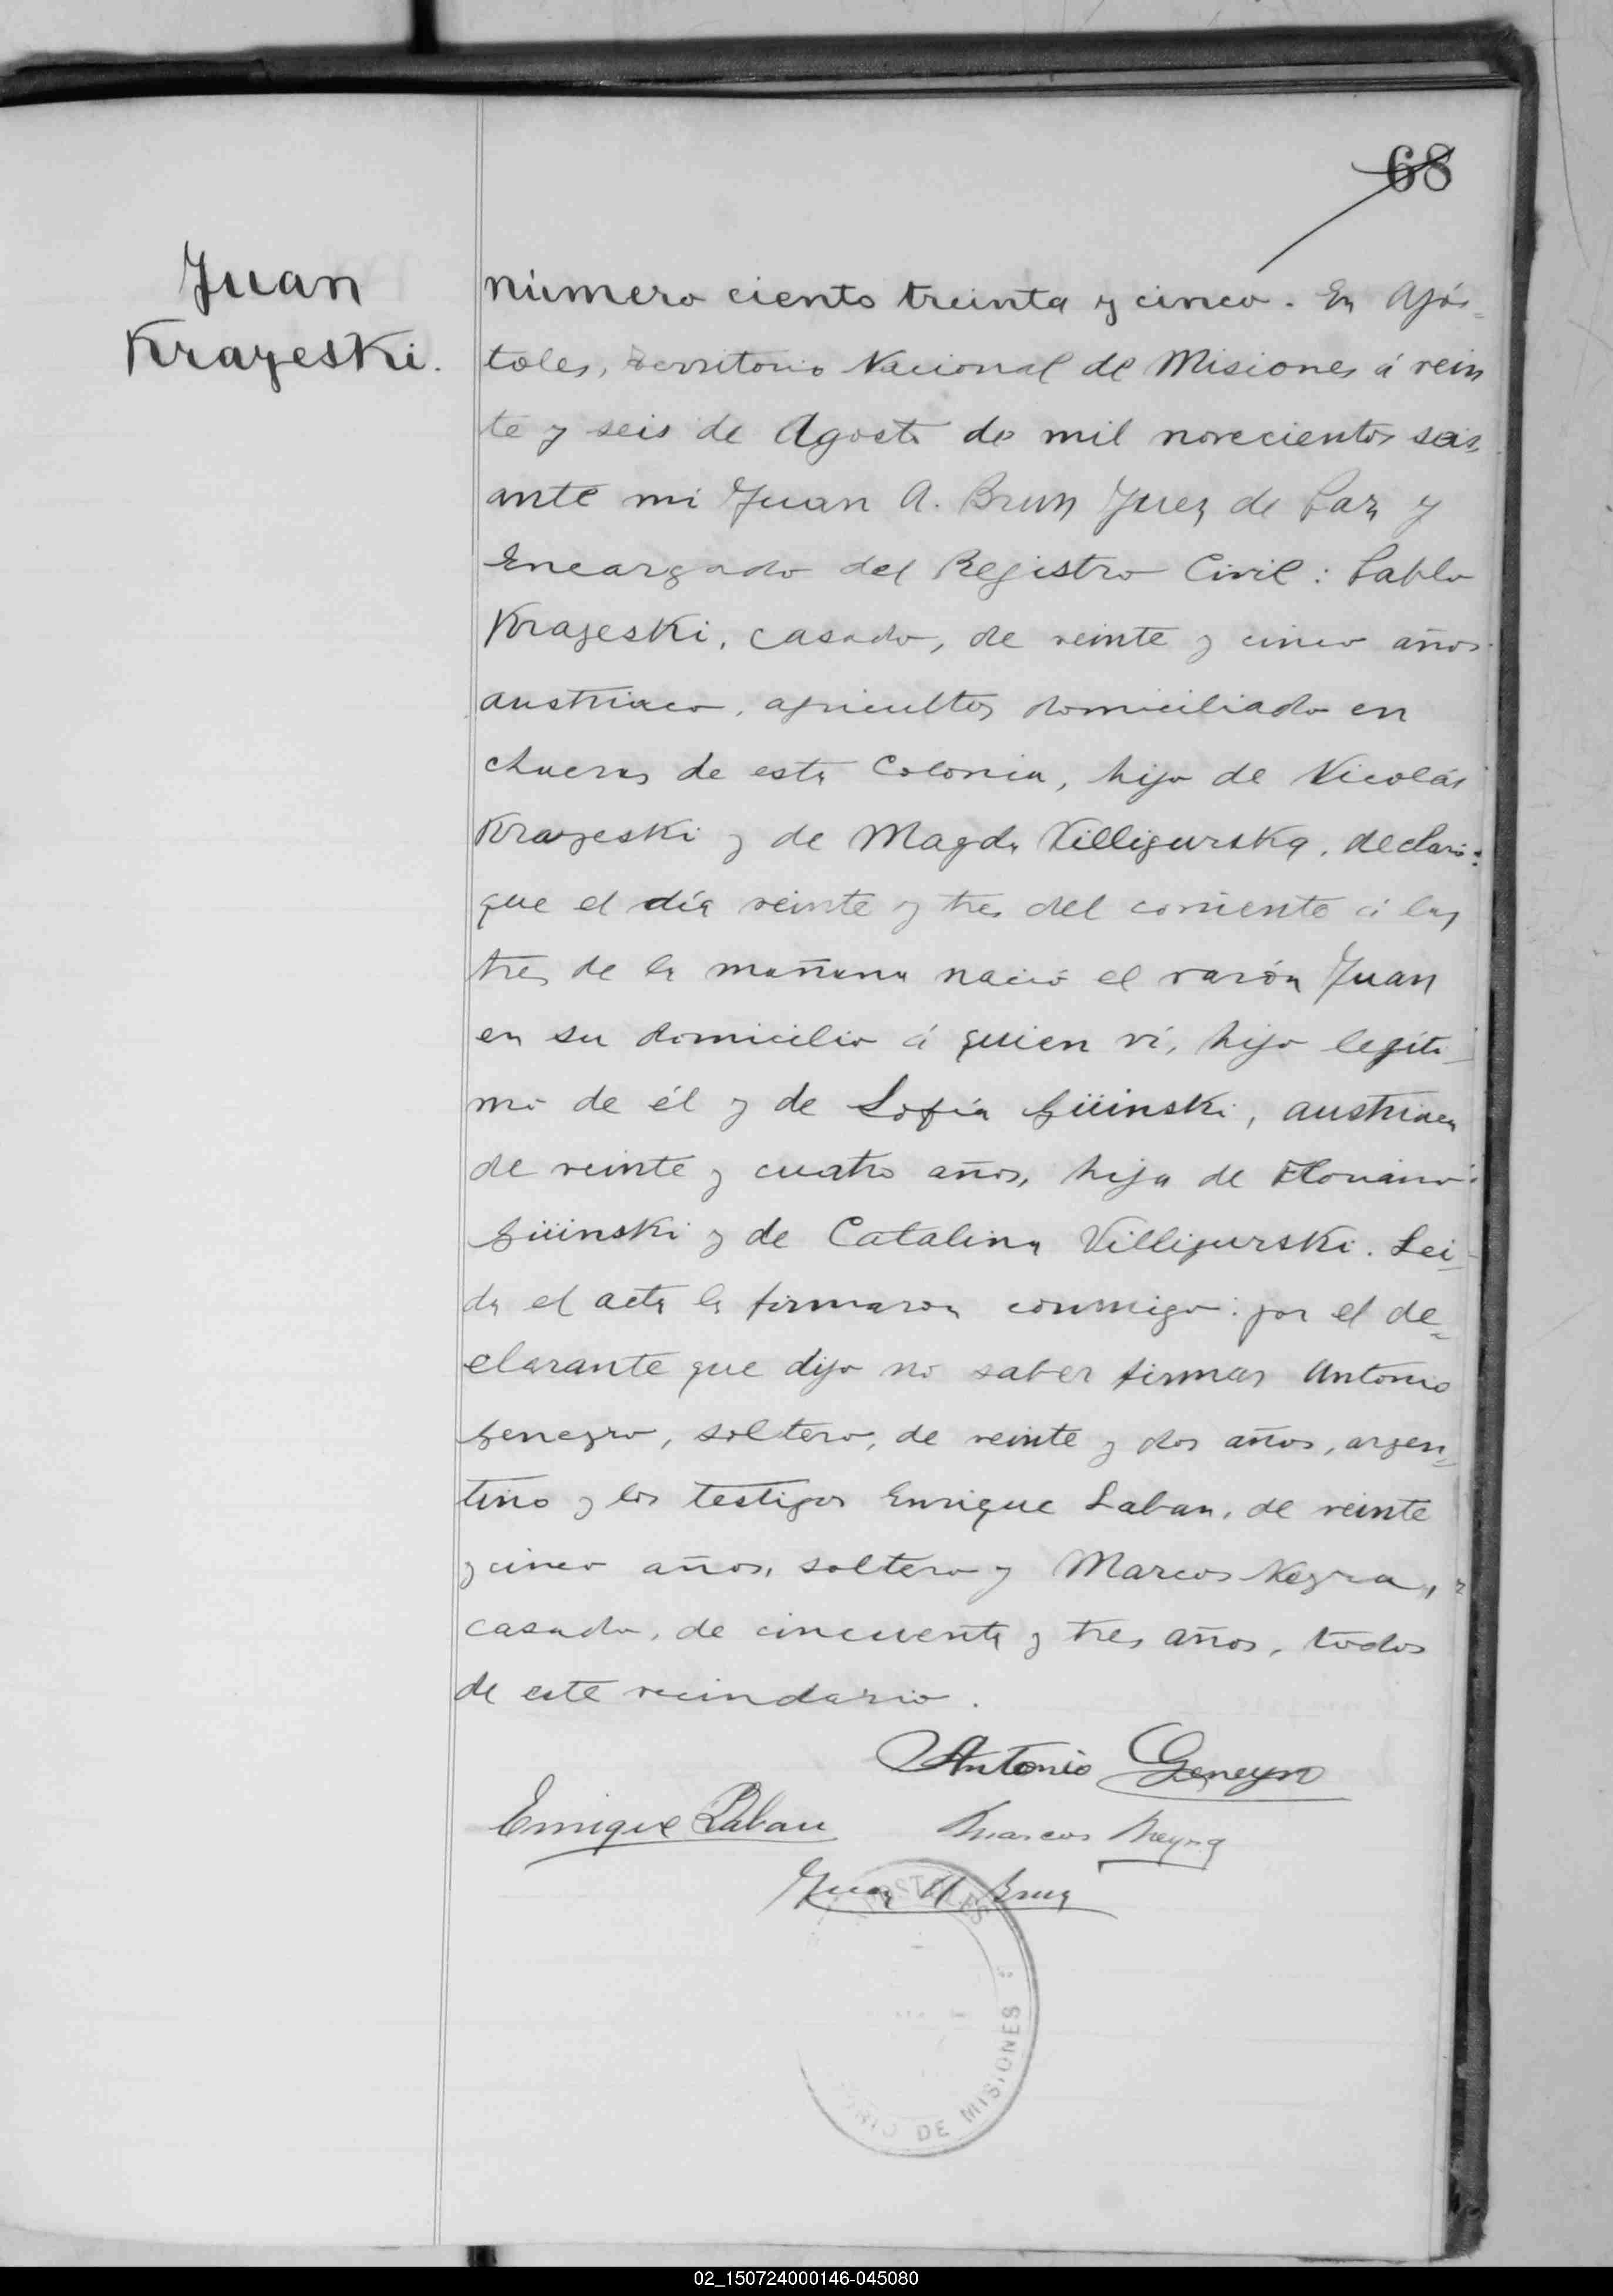 68
Juan
Krayeski.
número ciento treinta y cinco. En Após-
toles, Territorio Nacional de Misiones á vein
te y seis de Agosto de mil novecientos seis,
ante mi Juan A. Brun Juez de Paz y
Encargado del Registro Civil: Pablo
Krayeski, casado, de veinte y cinco años
austriaco, agricultor domiciliado en
chacras de esta Colonia, hijo de Nicolás
Krayeski y de Magda Villigurska, declaró:
que el día veinte y tres del corriente á las
tres de la mañana nació el varón Juan
en su domicilio á quien ví, hijo legíti-
mo de él y de Sofía austriaca
de veinte y cuatro años, hija de Floriano
y de Catalina Villigurski. Lei-
da el acta la firmaron conmigo: por el de-
clarante que dijo no saber firmar Antonio
Genegro, soltero, de veinte y dos años, argen-
tino y los testigos Enrique Laban, de veinte
y cinco años, soltero y Marcos
casado, de cincuenta y tres años, todos
de este vecindario.
Antonio
Enrique Laban Marcos
Juan A Brun
APOSTOLES
DE MISIONES
02_150724000146-045080